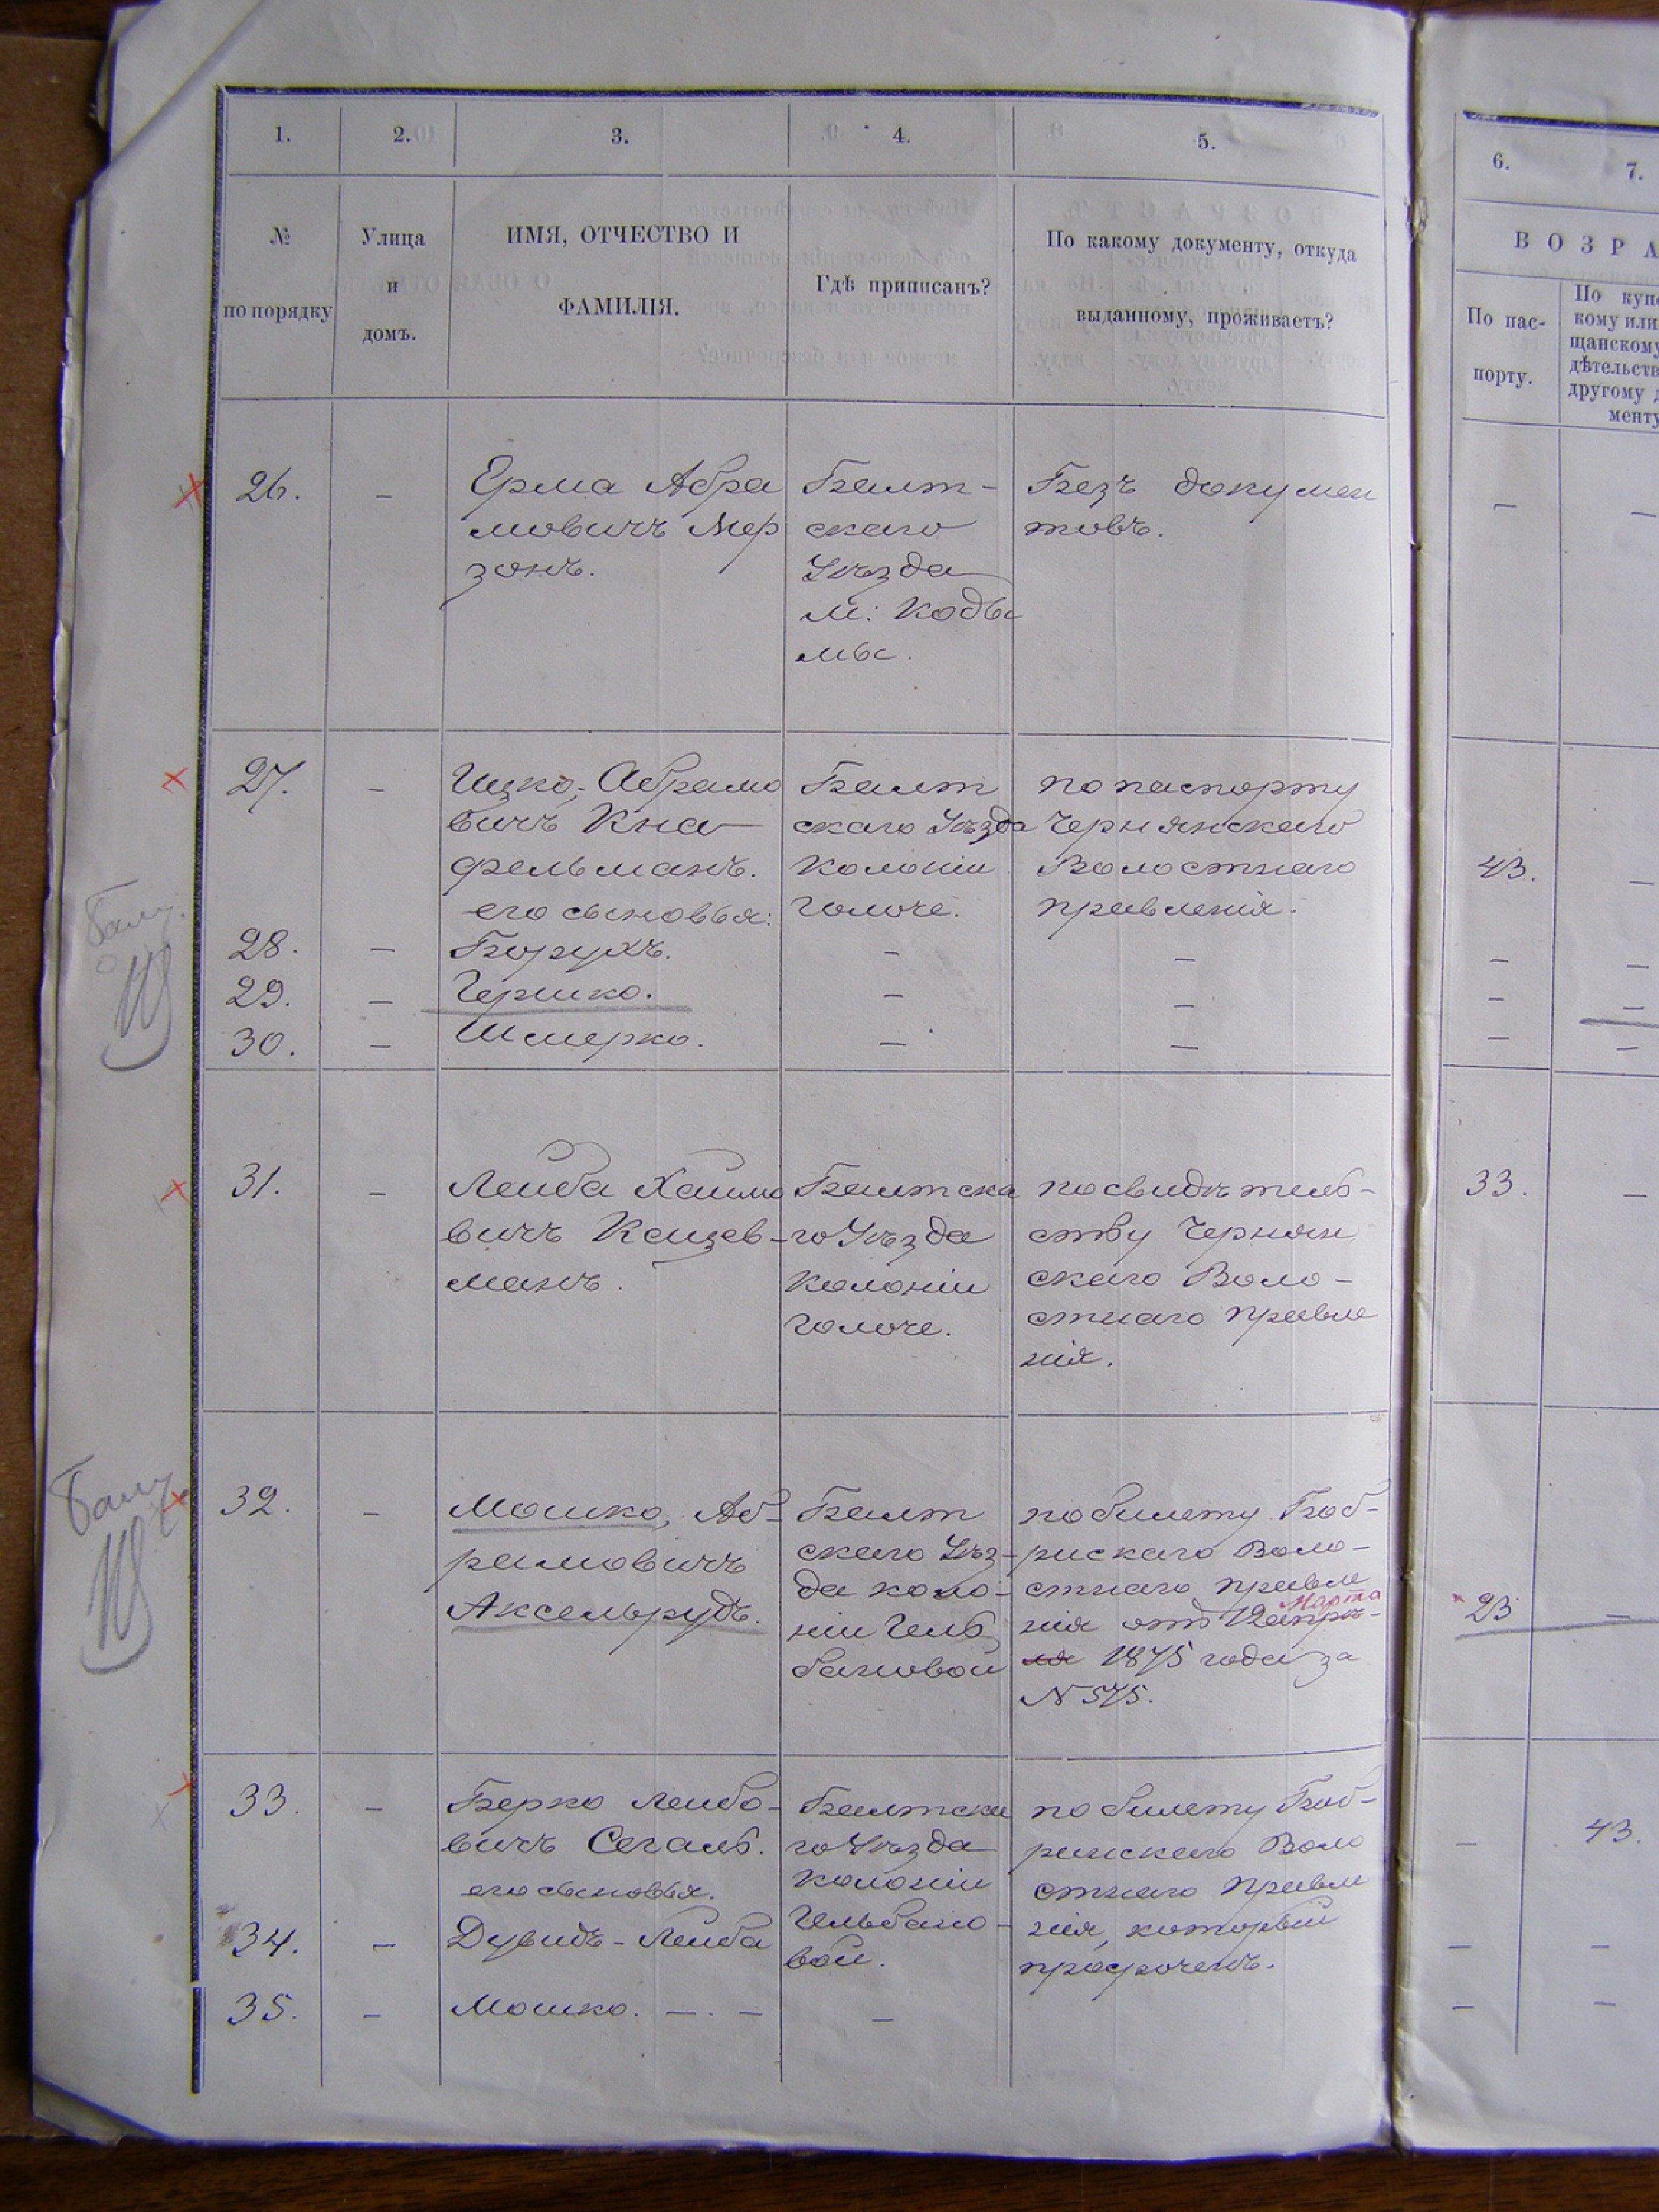 1. 2. 3. 4. 5. 6. 7.
№ по порядку
Улица и домъ.
ИМЯ, ОТЧЕСТВО И
ФАМИЛІЯ.
Гдѣ приписанъ?
По какому документу, откуда
выданному, проживаетъ?
ВОЗРА
По пас-
порту.
По купе
кому или
щанскому
дѣтельств
другому д
менту
26. –
Ерма Абра
мовичъ Мер
зонъ.
Балт-
скаго
Уѣзда
м: Коды
мы.
Безъ докумен
товъ.
– –
27. –
Ицко, Абрамо
вичъ Кна
фельманъ.
его сыновья:
Балт
скаго Уѣзда
Колоніи
Голоче.
по паспорту
Чернянскаго
Волостнаго
правленія.
43. –
28. – Борухъ. – – – –
29. – Гершко. – – – –
30. – Шмерко. – – – –
31. –
Лейба Хаимо
вичъ Кацев-
манъ.
Балтска
го Уѣзда
Колоніи
Голоче.
по свидѣтель-
ству Чернян
скаго Воло-
стнаго правле
нія.
33. –
32. –
Мошко, Аб-
рамовичъ
Аксельрудъ.
Балт
скаго Уѣз-
да коло-
ніи Гель
бановой
по билету Боб-
рискаго Воло-
стнаго правле
Марта
нія отъ 12 апрѣ-
ля 1875 года за
N 575.
23 –
33. –
Берко Лейбо-
вичъ Сегаль.
его сыновья.
Балтска
го Уѣзда
Колоніи
Гельбано-
вой.
по билету Боб-
ринскаго Воло
стнаго Правле
нія, который
просроченъ.
– 43.
34. – Дувидъ-Лейба – –
35. – Мошко. – . – – – –